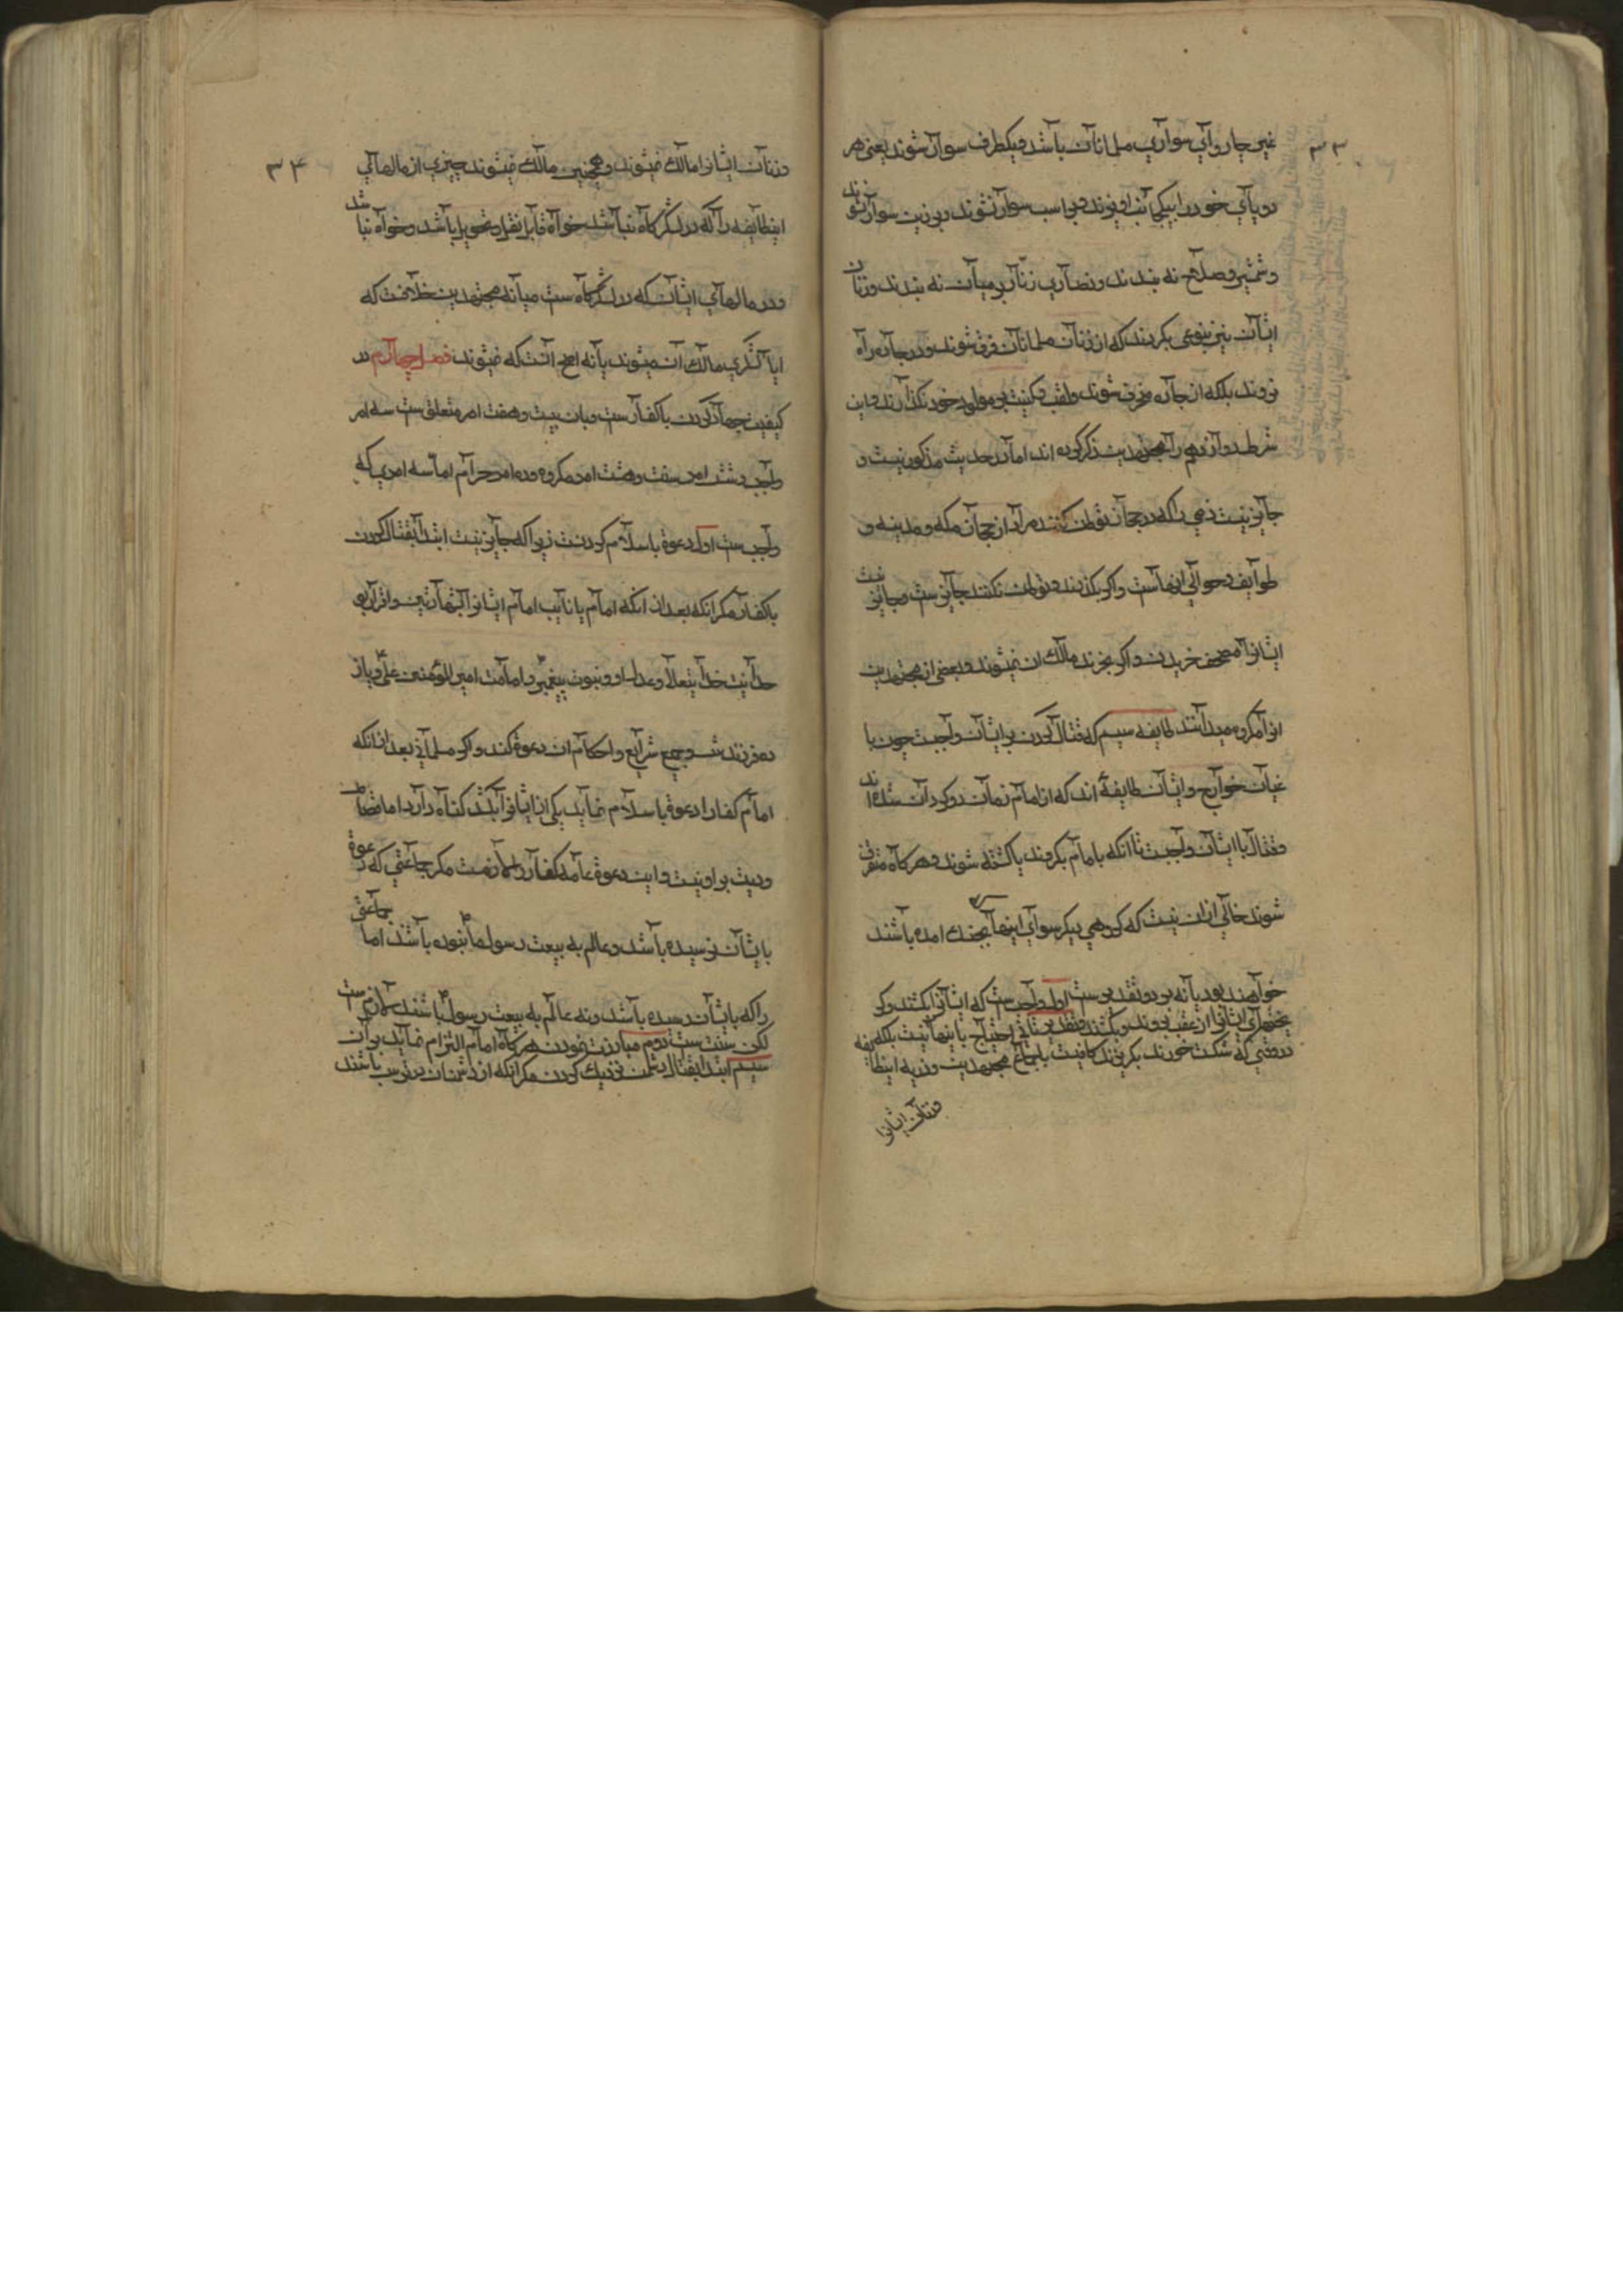 ۳۳
غیر چاروای سواری مسلمانان باشد و یکطرف سوار شوند یعنی هر
دو پای خود را بیکجانب اویزند و بر اسب سوار نشوند و بر زین سوار نشوند
و شمشیر و صلاح نه بندند و نصاری زنار بر میان نه بندند و زنان
ایشان نیز بنوعی بگردند که از زنان مسلمانان فرق شوند و در جاده راه
نروند بلکه از جاده منحرف شوند و لقب و کنیت بر مولود خود نگذارند و این
شرط دوازدهم را مجتهدین ذکر کرده اند اما در حدیث مذکور نیست و
جایز نیست ذمی را که در حجاز توطن کنند مراد از حجاز مکه و مدینه و
طوایف و حوالی اینهاست و اگر بگذرند و توطن نکنند جایز ست و جایز نیست
ایشانرا مصحف خریدن و اگر بخرند مالک ان نمیشوند و بعضی از مجتهدین
انرا مکروه میدانند طایفه سیم که قتال کردن بر ایشان واجبست چون با
غیان خوارج و ایشان طایفهٔ اند که از امام زمان روگردان شده اند
و قتال با ایشان واجبست تا انکه بامام بگروند یا کشته شوند و هر کاه متفرق
شوند خالی ازان نیست که گروهی دیگر سوای اینها بجنگ امده باشند
خواهند بود یا نه بر دو تقدیر ست اول واجب ست که ایشانرا بکشند و گر
یختهای ایشانرا از عقب بروند و بکشند و تقدیر ثانی احتیاج باینها نیست بلکه
در وقتی که شکست خورند بگریزند کافیست باجماع مجتهدین و ذریه اینطایفه
و زنان ایشانرا
۳۴
و زنان ایشانرا مالک نمیشوند و همچنین مالک نمیشوند چیزی از مالهای
اینطایفه را که در لشگرکاه نباشد خواه قابل نقل و تحویل باشد و خواه نباشد
و در مالهای ایشان که در لشگرکاه ست میانه مجتهدین خلافست که
ایا لشگری مالک آن میشوند یا نه اصح آنست که نمیشوند فصل چهارم در
کیفیت جهاد کردن با کفار ست و بان بیست و هفت امر متعلق ست سه امر
واجب و شش امر سنت و هشت امر مکروه و ده امر حرام اما سه امری که
واجب ست اول دعوة باسلام کردنست زیرا که جایز نیست ابتدا بقتال کردن
باکفار مگر انکه بعد از انکه امام یا نایب امام ایشانرا بشهادتین و اقرار بو
حدانیت خدا یتعالا و عدل او و نبوت پیغمبر و امامت امیر المؤمنین علی و یاز
ده فرزندش و جمیع شرایع و احکام ان دعوة کند و اگر مسلمانی بعد از انکه
امام کفار را دعوة باسلام نماید یکی از ایشانرا بکشد گناه دارد اما قصاص
و دیت بر او نیست و این دعوة عامه کفار را لازمست مگر جماعتی که دعوة
بایشان نرسیده باشد و عالم به بیعت رسول ما نبوده باشند اما جماعتی
را که بایشان رسیده باشد و نه عالم به بیعت رسول باشند لازم ست
لکن سنت ست دوم مبارزت نمودن هر کاه امام الزام نماید بر آن
سیم ابتدا بقتال دشمن نزدیک کردن مگر انکه از دشمنان در ترس باشند